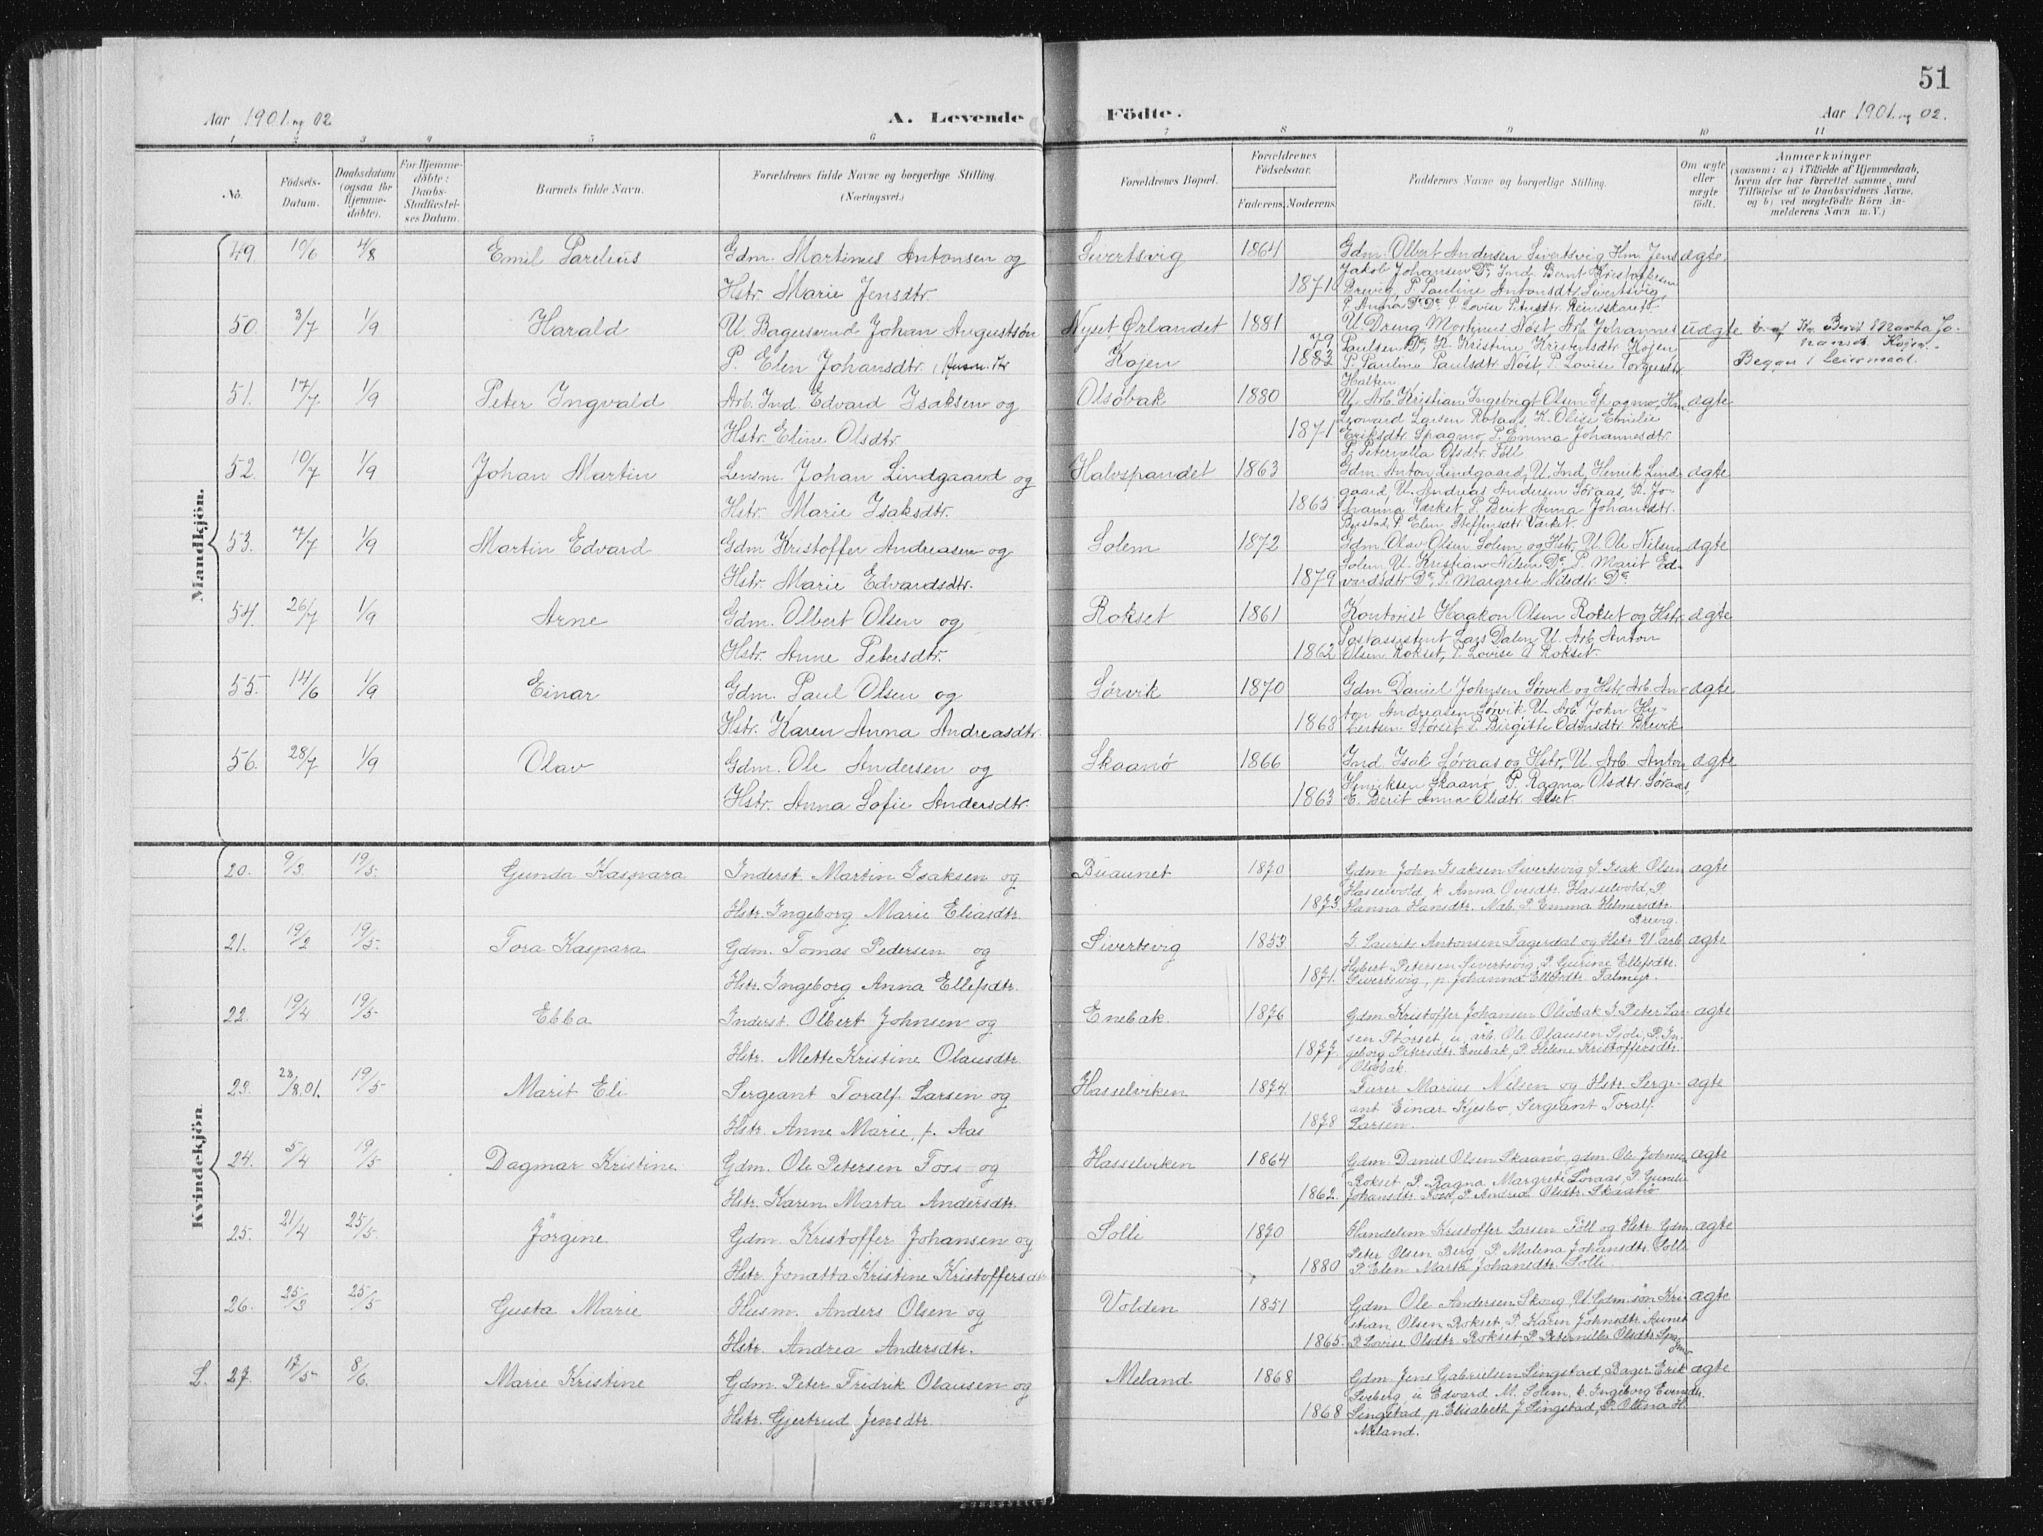 51
Aar 1901 og 02. A. Levende Födte. Aar 1901 og 02.
1 2 3 4 5 6 7 8 9 10 11
No. Födsels-Datum. Daabsdatum (ogsaa for Hjemmedöbte). For Hjemmedöbte: Daabs-Stadfæstelses Datum. Barnets fulde Navn. Forældrenes fulde Navne og borgerlige Stilling. (Næringsvei.) Forældrenes Bopæl. Forældrenes Födselsaar. Faderens. Moderens. Faddernes Navne og borgerlige Stilling. Om ægte eller uægte födt. Anmærkninger (saasom: a) i Tilfælde af Hjemmedaab, hvem der har forrettet samme, med Tilföielse af to Daabsvidners Navne, og b) ved uægtefödte Börn Anmelderens Navn m. V.)
Mandkjön.
49. 10/6 4/8 Emil Parelius Gdm. Martinus Antonsen og Sivertsvig 1864 Gdm. Olbert Andersen Sivertsvig Hm Jens ægte
Jakob Johansen Do, Ind. Bernt Kristoffersen
Hstr. Marie Jensdtr. 1871 Brevig P. Pauline Antonsdtr. Sivertsvig
P. Anna Do Do P. Lovise Petersdtr. Reinsskaret
50. 3/7 1/9 Harald U. Bagersvend Johan Augustsön Nyset, Ørlandet 1881 U. Dreng Martinus Nöst, Arb. Johannes uægte Berit Marta Jo-
79 Paulsen Do, K. Kristine Kristensdtr. Kojen hansdt. Kojen.
P. Elen Johansdtr. Kojen 1883 P. Pauline Paulsdtr. Nöst, P. Lovise Torgersdtr. Begges 1 Leiermaal.
Halten.
51. 17/7 1/9 Peter Ingvald Arb. Ind. Edvard Isaksen og Olsöbak 1880 U. Arb. Kristian Ingebrigt Olsen Spagmo, Hm ægte
Leonard Larsen Rokaas, K. Olise Emilie
Hstr. Eline Olsdtr. 1871 Eriksdtr. Spagmo P. Emma Johannesdtr.
P. Peternella Olsdtr. Föll
52. 10/7 1/9 Johan Martin Lensm. Johan Lindgaard og Halvspandet 1863 Gdm. Anton Lindgaard, U. Ind. Henrik Lind- ægte
gaard, U. Andreas Andersen Søraas, K. Jo-
Hstr. Marie Isaksdtr. 1865 hanna Værket, P. Berit Anna Johansdtr.
P. Elen Steffensdtr. Værket.
53. 7/7 1/9 Martin Edvard Gdm Kristoffer Andreasen og Solem 1872 Gdm. Olav Olsen Solem og Hstr. U. Ole Nilsen ægte
Solem U. Kristian Nilsen Do, P. Marit Ed-
Hstr. Marie Edvardsdtr. 1879 vardsdtr. Do, P. Margrete Nilsdtr. Do.
54. 26/7 1/9 Arne Gdm. Olbert Olsen og Rokset 1861 Kontorist Haakon Olsen Rokset og Hstr. ægte
Postassistent Lars Dalen U. Arb. Anton
Hstr. Anne Petersdtr. 1862 Olsen Rokset, P. Lovise O Rokset.
55. 14/6 1/9 Einar Gdm. Paul Olsen og Sørvik 1870 Gdm Daniel Johnsen Sørvik og Hstr. Arb. An- ægte
ton Andreasen Sørvik U. Arb. John Hy-
Hstr. Karen Anna Andreasdtr. 1868 bertsen Størset P. Birgitte Odinsdtr Brevik
56. 28/7 1/9 Olav Gdm. Ole Andersen og Skaanø 1866 Ind. Isak Søraas og Hstr. U. Arb. Anton ægte
Henriksen Skaanø, P. Ragna Olsdtr. Søraas,
Hstr. Anna Sofie Andersdtr. 1863 Berit Anna Olsdtr. Alset.
Kvindekjön.
20. 9/3 19/5 Gunda Kaspara Inderst. Martin Isaksen og Buaunet 1870 Gdm John Isaksen Sivertsvig I. Isak Olsen ægte
Hasselvold, k Anna Ovesdtr. Hasselvold P.
Hstr. Ingeborg Marie Eliasdtr. 1873 Hanna Hansdtr. Nab. P. Emma Helmersdtr.
Brevig.
21. 19/2 19/5 Tora Kaspara Gdm. Tomas Pedersen og Sivertsvig 1853 I. Laurits Antonsen Fagerdal og Hstr. U arb ægte
Hybert Petersen Sivertsvig, P. Gurine Ellefsdtr.
Hstr. Ingeborg Anna Ellefsdtr. 1871. Sivertsvig, p. Johanna Ellefsdtr.
22. 19/4 19/5 Ebba Inderst. Olbert Johnsen og Enebak. 1876 Gdm Kristoffer Johansen Olsöbak I. Peter Lar- ægte
sen Störset, u. arb. Ole Olausen P. In-
Hstr. Mette Kristine Olausdtr. 1877 geborg Petersdtr. Enebak, P. Helene Kristoffersdtr.
Olsöbak.
23. 28/8.01. 19/5 Marit Eli Sergeant Toralf Larsen og Hasselviken 1874 Furer Marius Nilsen og Hstr. Serge- ægte
ant Einar Kjesbo, Sergeant Toralf
Hstr. Anne Marie, f. Aas 1878 Larsen.
24. 5/4 19/5 Dagmar Kristine Gdm. Ole Petersen Foss og Hasselviken 1864 Gdm. Daniel Olsen Skaanø, gdm Ole Johnsen ægte
Rokset, P. Ragna Margrete Søraas, P. Gunela
Hstr. Karen Marta Andersdtr. 1862. Johansdtr. Foss, P. Andrea Olsdtr. Skaanø
25. 21/4 25/5 Jörgine Gdm. Kristoffer Johansen og Solli 1870 Handelsm Kristoffer Larsen Föll og Hstr. Gdm. ægte
Peter Olsen Berg P. Malena Johansdtr. Solli
Hstr. Jonatta Kristine Kristoffersdtr. 1880 P. Elen Marta Johansdtr. Solli.
26. 25/3 25/5 Gusta Marie Husm. Anders Olsen og Volden 1851 Gdm Ole Andersen Skaug, U. Gdm.sön Kri- ægte
stian Olsen Rokset, P. Karen Johnsdtr. Aunet
Hstr. Andrea Andersdtr. 1865. P. Lovise Olsdtr. Rokset P. Peternille Olsdtr. Spagmo
L. 27. 17/5 8/6. Marie Kristine Gdm. Peter Fridrik Olausen og Meland 1868 Gdm. Jens Gabrielsen Singstad Bager Erik ægte
Soberg u Edvard M. Solem, k. Ingeborg Evensdtr.
Hstr. Gjertrud Jensdtr. 1868 Singstad, p. Elisabeth J Singstad, P. Oltina H.
Meland.